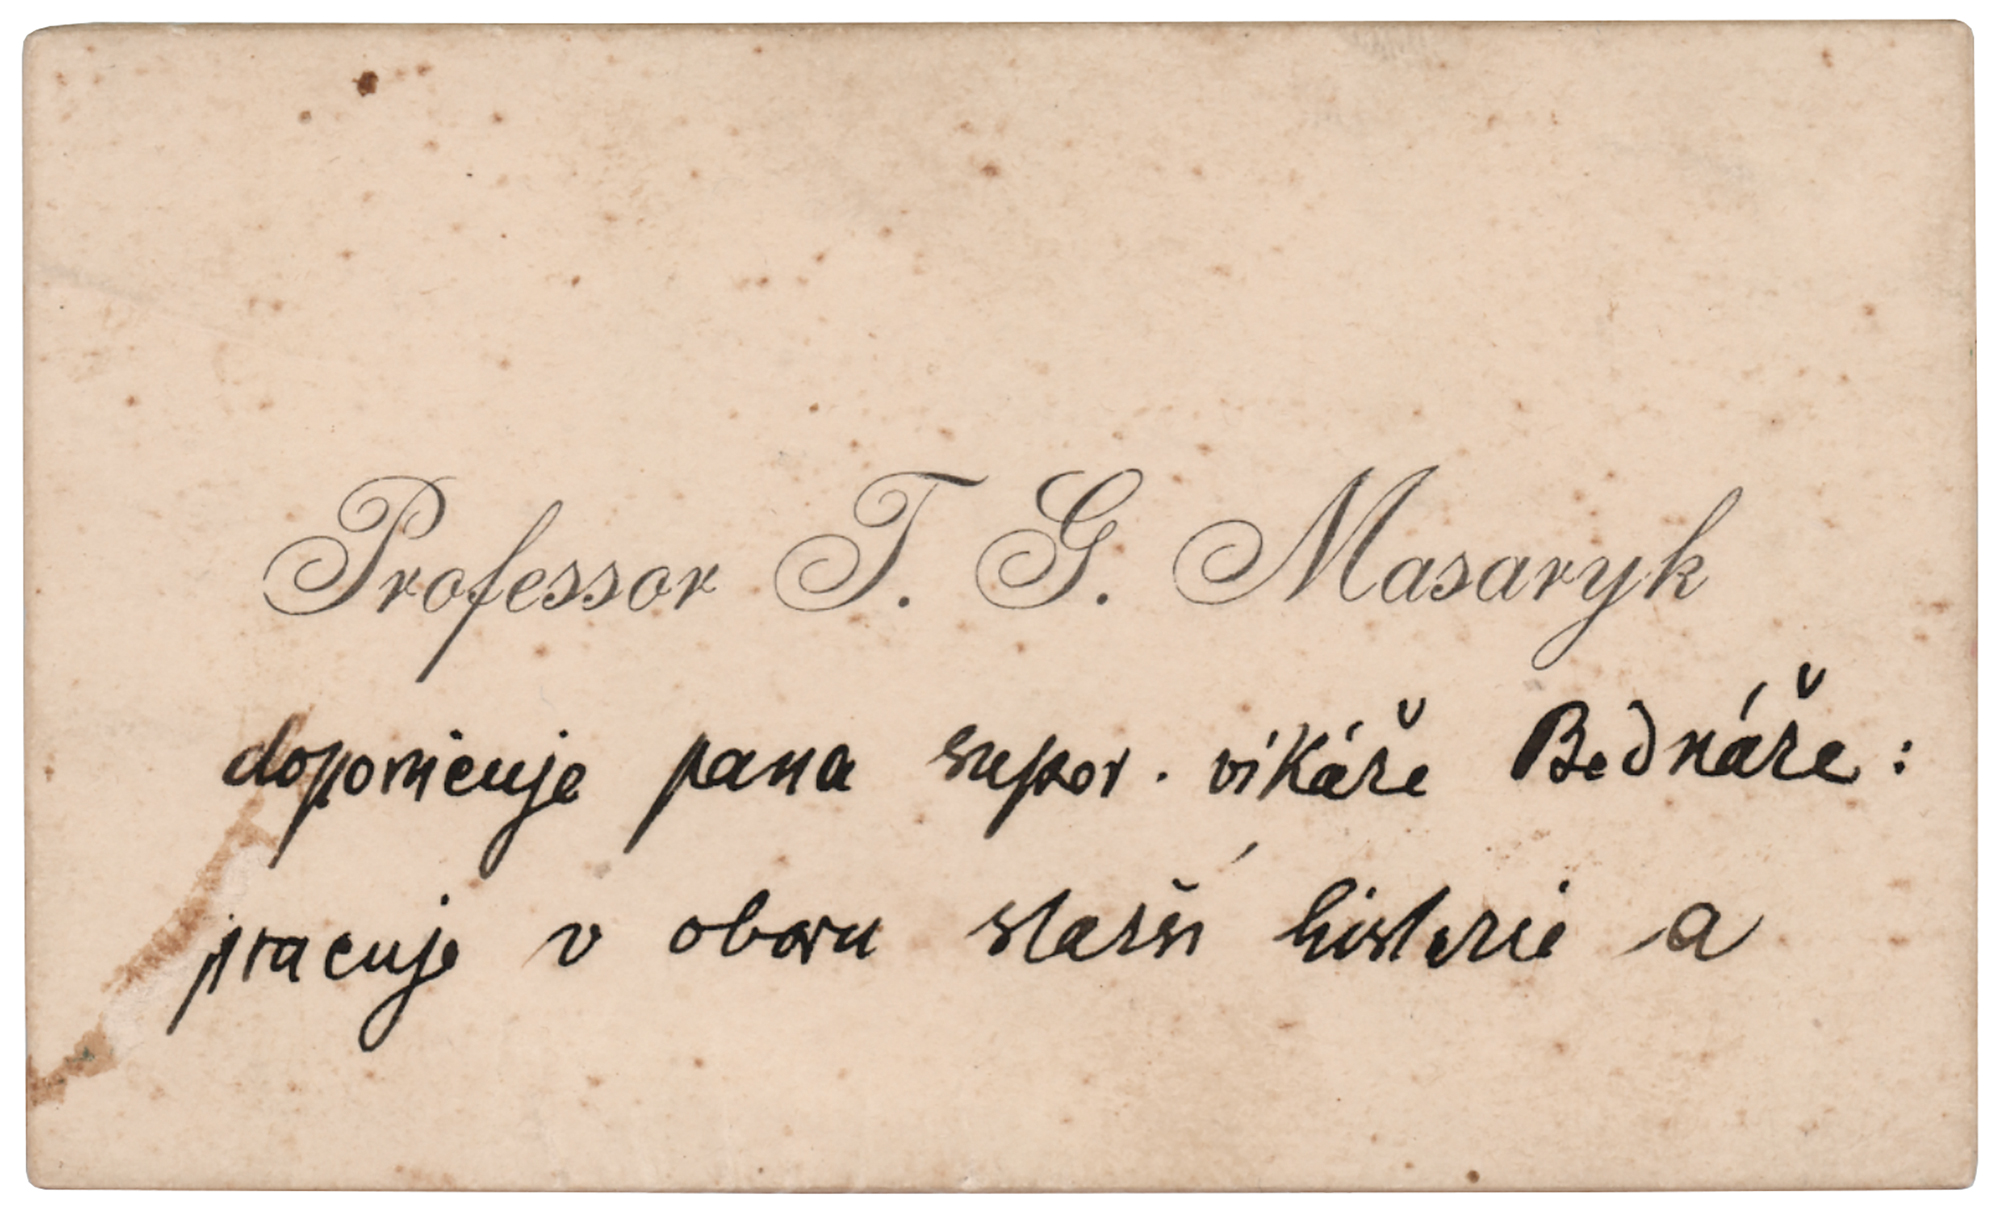 Professor T. G. Masaryk
doporučuje pana super. vikáře Bednáře:
pracuje v oboru starší historie a